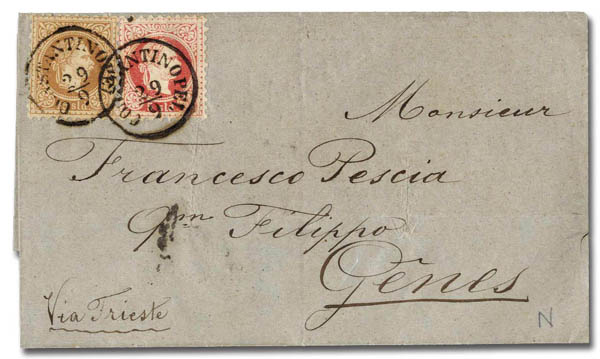 CONSTANTINOPEL
29/9
CONSTANTINOPEL
29/9
Monsieur
Francesco Pescia
qm Filippo
Gênes
Via Trieste
N